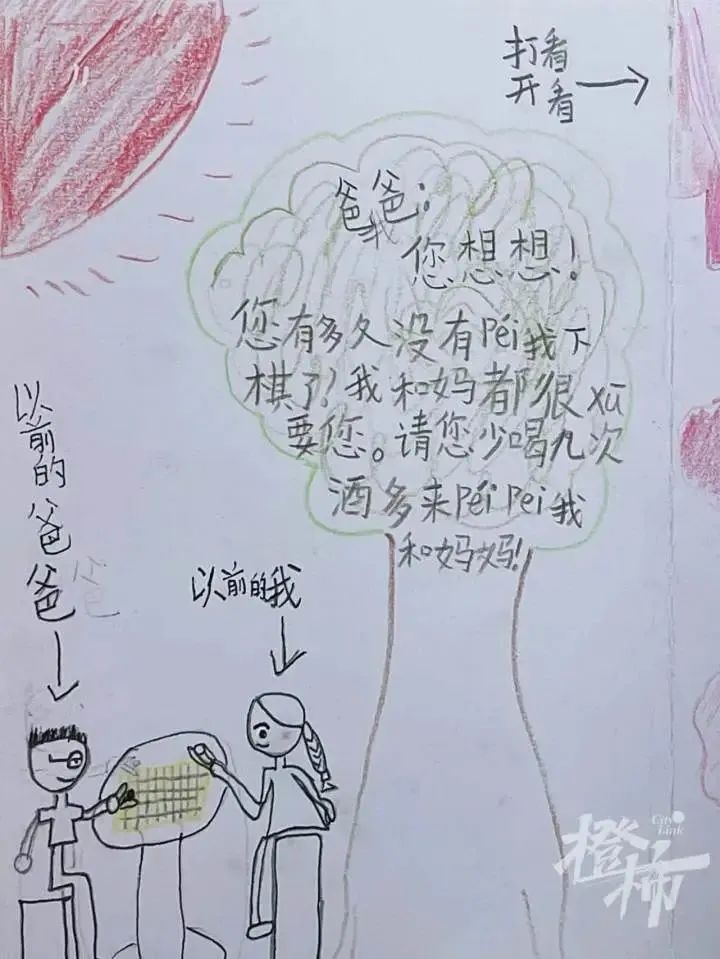 打看
开看
爸爸：
我
您想想！
您有多久没有péi我下
棋了！我和妈都很xū
要您。请您少喝九次
酒多来péi pei我
和妈妈！
以前的爸爸
爸
以前的我
City Link
橙柿